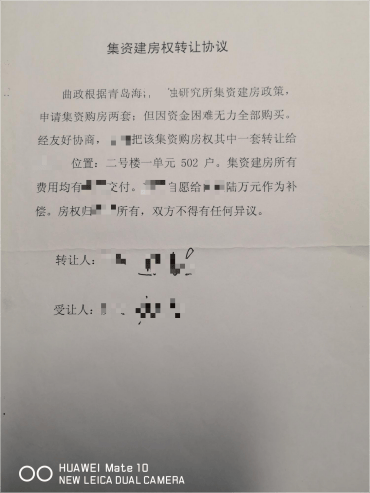 集资建房权转让协议
曲政根据青岛海 研究所集资建房政策，
申请集资购房两套；但因资金困难无力全部购买。
经友好协商， 把该集资购房权其中一套转让给
位置：二号楼一单元 502 户。集资建房所有
费用均有 交付。 自愿给 陆万元作为补
偿。房权归 所有，双方不得有任何异议。
转让人：
受让人：
HUAWEI Mate 10
NEW LEICA DUAL CAMERA